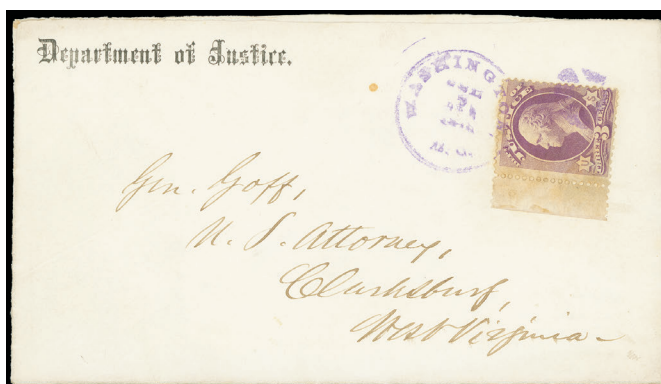 Department of Justice.
WASHINGT
JUSTICE
Gen. Goff,
U. S. Attorney,
Clarksburg,
West Virginia